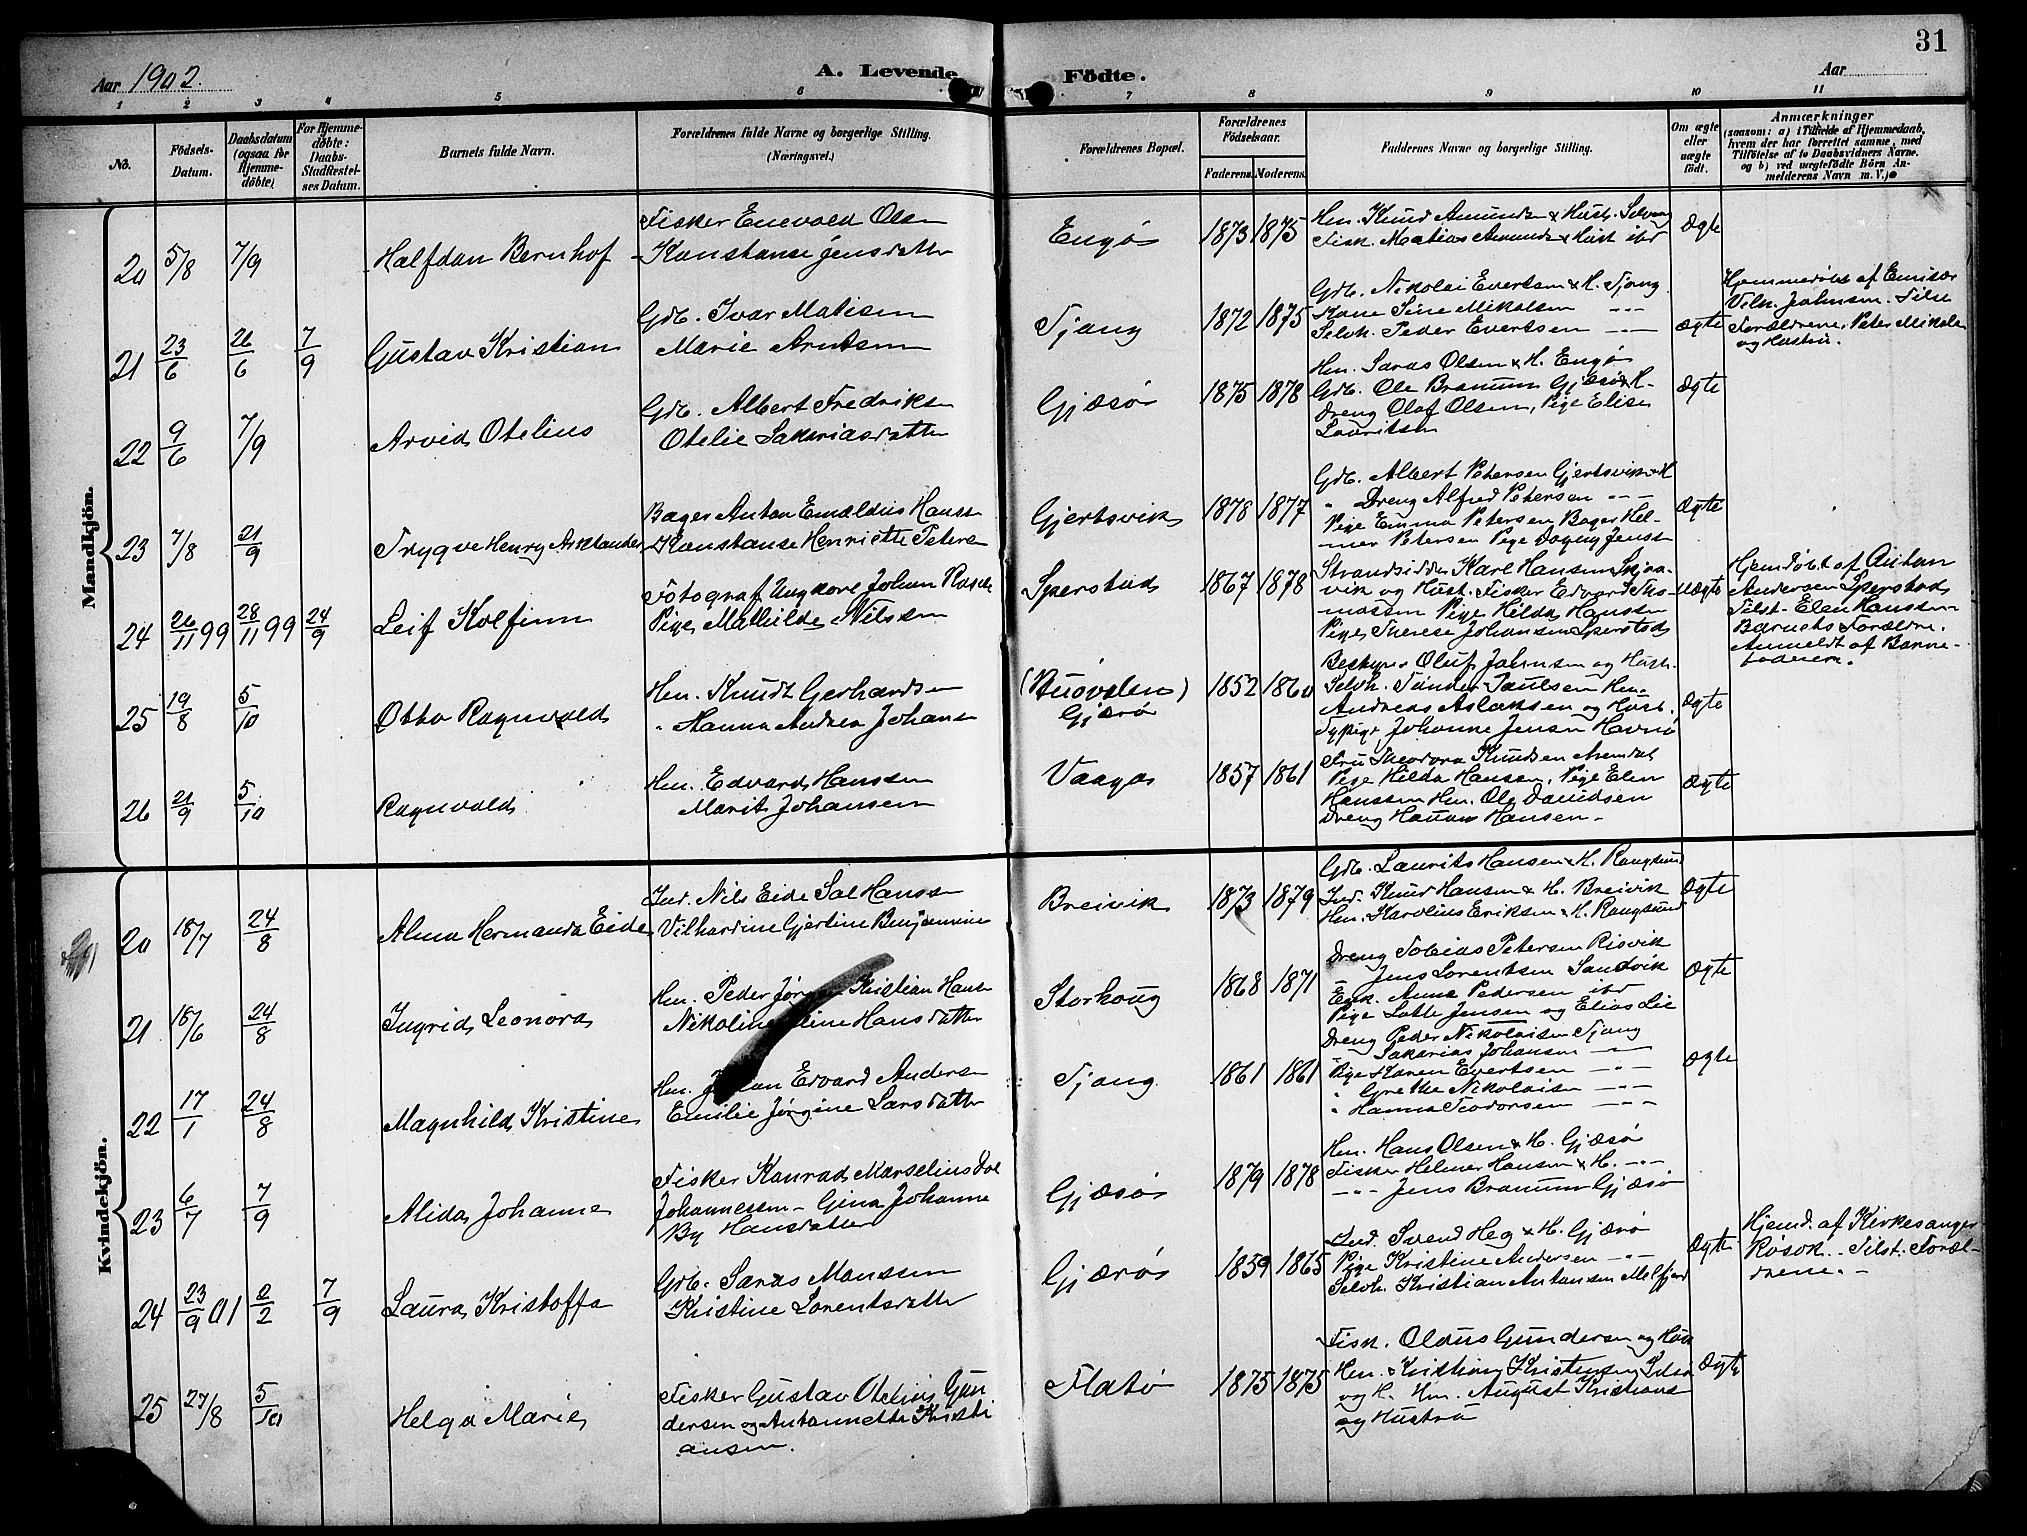 31
Aar 1902.
A. Levende Födte.
Aar
1 2 3 4 5 6 7 8 9 10 11
No.
Födsels-Datum.
Daabsdatum (ogsaa for Hjemme-döbte)
For Hjemme-döbte: Daabs-Stadfæstel-ses Datum.
Barnets fulde Navn.
Forældrenes fulde Navne og borgerlige Stilling.
(Næringsvei.)
Forældrenes Bopæl.
Forældrenes Födselsaar.
Faderens. Moderens.
Faddernes Navne og borgerlige Stilling.
Om ægte eller uægte födt.
Anmærkninger
(saasom: a) i Tilfælde af Hjemmedaab,
hvem der har forrettet samme, med
Tilföielse af to Daabsvidners Navne.
og b) ved uægtefödte Börn An-
melderens Navn m. V.)
Mandkjön.
20 5/8 7/9 Halfdan Bernhof
Fisker Enevold Olsen
Konstanse Jensdatter
Engø 1873 1875
Hm. Knud Amundsen & Hust. Selvog
Fisk. Matias Amunds & Hust ibd
Ægte
21 23/6 26/6 7/9 Gustav Kristian
Gdb. Ivar Matisen
Marie Arntsen
Tjong 1872 1875
Gdb. Nikolai Evertsen & H. Tjong
Kone Sine Mikalsen
Selvh. Peder Evertsen
Ægte
Hjemmedøbt af Emisær
Vilh. Johnsen. Tilst
Forældrene, Peter Mikals
og Hustru.
22 9/6 7/9 Arvid Otelius
Gdb. Albert Fredriksen
Otelie Sakariasdatter
Gjæsø 1875 1878
Hm. Saras Olsen & H. Engø
Gdb. Ole Branum Gjæsø & H.
Dreng Olaf Olsen, Pige Elise
Lauritsen
Ægte
23 7/8 21/9 Trygve Henry Asklander
Bager Anton Emaldius Hansen
Konstanse Henriette Peters
Gjertsvik 1878 1877
Gdb. Albert Petersen Gjertsvik & H
" Dreng Alfred Petersen
Pige Emma Petersen Bager Hel-
mer Petersen Pige Dagny Jensen
Ægte
24 26/11 99 28/11 99 24/9 Leif Kolfinn
Fotograf Ungkarl Johan Rasch
Pige Mathilde Nilssen
Sperstad 1867 1878
Strandsidder Karl Hansen Skjaa-
vik og Hust. Fisker Edvard Tho-
massen Pige Hilda Hansen
Pige Therese Johansen Sperstad
Uægte
Hjemdøbt af Anton
Andersen Sperstad
Tilst- Elen Hanssen
Barnets Forældre.
Anmeldt af Barne-
faderen.
25 19/8 5/10 Otto Ragnvald
Hm. Knudt Gerhardsen
" Hanna Andrea Johans
Gjærø 1852 1860
Bestyrer Oluf Johnsen og Hust.
Selvh. Tønder Paulsen Hm.
Andreas Aslaksen og Hust.
Sypige Johanne Jensen Havnø
Ægte
26 21/9 5/10 Ragnvald
Hm. Edvard Hanssen
Marit Johansen
Vaaga 1857 1861
Fru Theodora Knudsen Arendal
Pige Hilda Hansen, Pige Elen
Hanssen Hm. Ole Davidsen
Dreng Hansen.
Ægte
Kvindekjön.
20 18/7 24/8 Alma Hermanda Eide
Ind. Nils Eide Sal Hanssen
Vilhardine Gjertine Benjaminsen
Breivik 1873 1879
Gdb. Laurits Hansen & H. Rangsund
Ind. Knud Hansen & H. Breivik
Hm. Karolius Eriksen & H. Rangsund
Ægte
21 18/6 24/8 Ingrid Leonora
Hm. Peder Jørgen Kristian Hans
Nikoline Hansdatter
Storhoug 1868 1871
Dreng Tobias Petersen Risvik
" Jens Lorentsen Sandvik
Enk. Anna Pedersen ibd
Pige Lotte Jensen og Elias Lie
Ægte
22 17/1 24/8 Magnhild Kristine
Hm. Johan Edvard Anders
Emilie Jørgine Larsdatter
Tjong 1861 1861
Dreng Peder Nikolaisen Tjong
" Sakarias Johansen
Pige Karen Evertsen
" Grethe Nikolaisen
" Hanna Teodorsen
Ægte
23 6/7 7/9 Alida Johanne
Fisker Konrad Marselius Dal
Johannessen - Gina Johanne
By Hansdatter
Gjæsø 1879 1878
Hm. Hans Olsen & H. Gjæsø
Fisker Helmer Hansen & H.
Jens Branum Gjæsø
24 23/9 01 2/2 7/9 Laura Kristoffa
Gdb. Saras Monssen
Kristine Lorentsdatter
Gjærø 1859 1865
Ind. Svend Heg & H. Gjærø
Pige Kristine Andersen
Selvh. Kristian Antonsen Melfjord
Ægte
Hjemd. af Kirkesanger
Røsok. Tilst. Foræl-
drene.
25 27/8 5/10 Helga Marie
Fisker Gustav Otelius Gun
dersen og Antonnette Kristi
ansen.
Flatø 1875 1875
Fisk. Oldus Gundersen og Hus
Hm. Kristian Kristensen Selsø
og H. Hm. August Kristians
og Hustru
Ægte